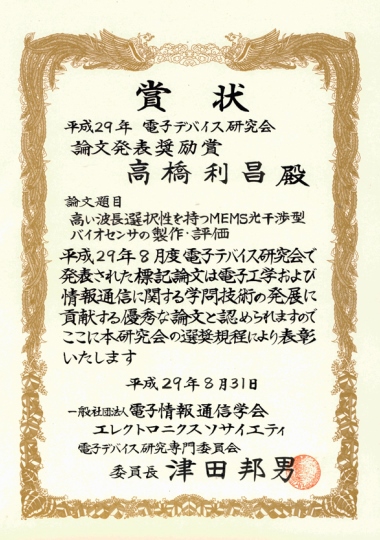 賞状
平成29年 電子デバイス研究会
論文発表奨励賞
高橋利昌殿
論文題目
高い波長選択性を持つMEMS光干渉型
バイオセンサの製作・評価
平成29年8月度電子デバイス研究会で
発表された標記論文は電子工学および
情報通信に関する学問技術の発展に
貢献する優秀な論文と認められますので
ここに本研究会の選奨規程により表彰
いたします
平成29年8月31日
一般社団法人電子情報通信学会
エレクトロニクスソサイエティ
電子デバイス研究専門委員会
委員長 津田邦男